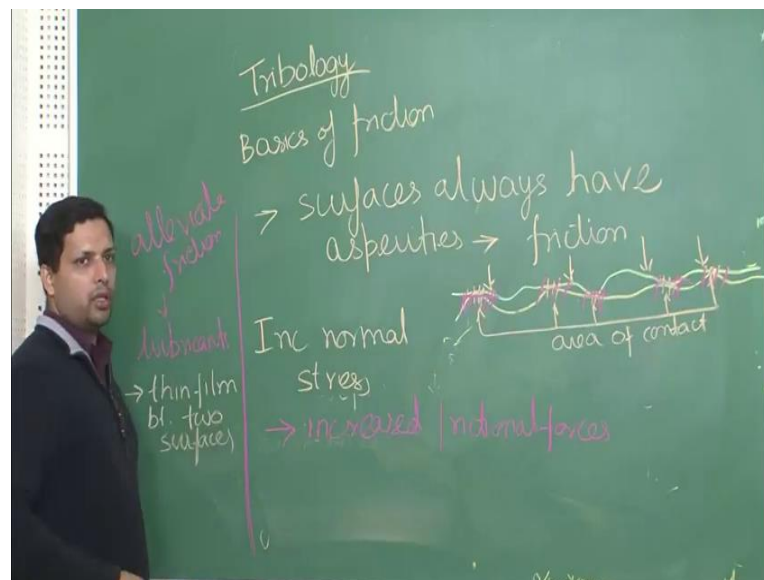 Tribology
Basics of friction
> surfaces always have
asperities → friction
area of contact
Inc normal
stress
→ increased frictional forces
alleviate
friction
↓
lubricants
→ thin film
bt. two
surfaces